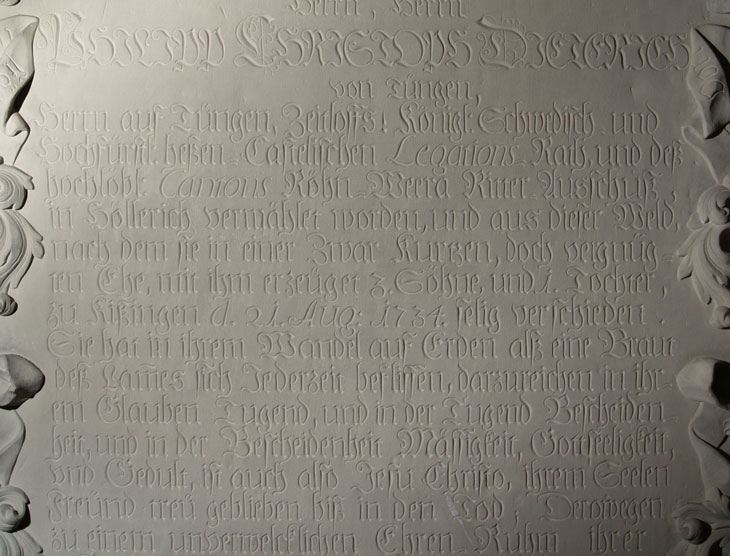 Herrn, Herrn
PHILIPP CHRISTOPH DIETERICH
von Tüngen,
Herrn auf Tüngen, Zeitloffs: Königl: Schwedisch- und
Hochfürstl: heßen-Casselischen Legations-Rath, und deß
hochlöbl: Cantons Röhn-Weera Ritter Ausschuß,
in Höllerich vermählet worden, und aus dieser Weld,
nach dem sie in einer Zwar Kurtzen, doch vergnüg-
ten Ehe, mit ihm erzeüget 3. Söhne, und 1. Tochter,
zu Kißingen d. 21. Aug: 1734. selig verschieden.
Sie hat in ihrem Wandel auf Erden alß eine Braut
deß Lam̅es sich Jederzeit beflissen, darzureichen in ihr-
em Glauben Tugend, und in der Tugend Bescheiden-
heit, und in der Bescheidenheit Mässigkeit, Gottseeligkeit,
und Gedult, ist auch also Jesu Christo, ihrem Seelen
Freünd treü geblieben biß in den Tod, Derowegen
zu einem unverwelcklichen Ehren-Ruhm ihrer